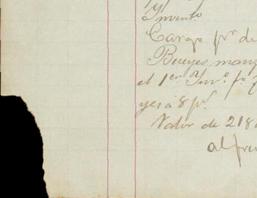 Invento
Cargo pr. de
Bueyes mans
el 1er Inv.o po
yes á 8 ps.
Valor de 218
al fren